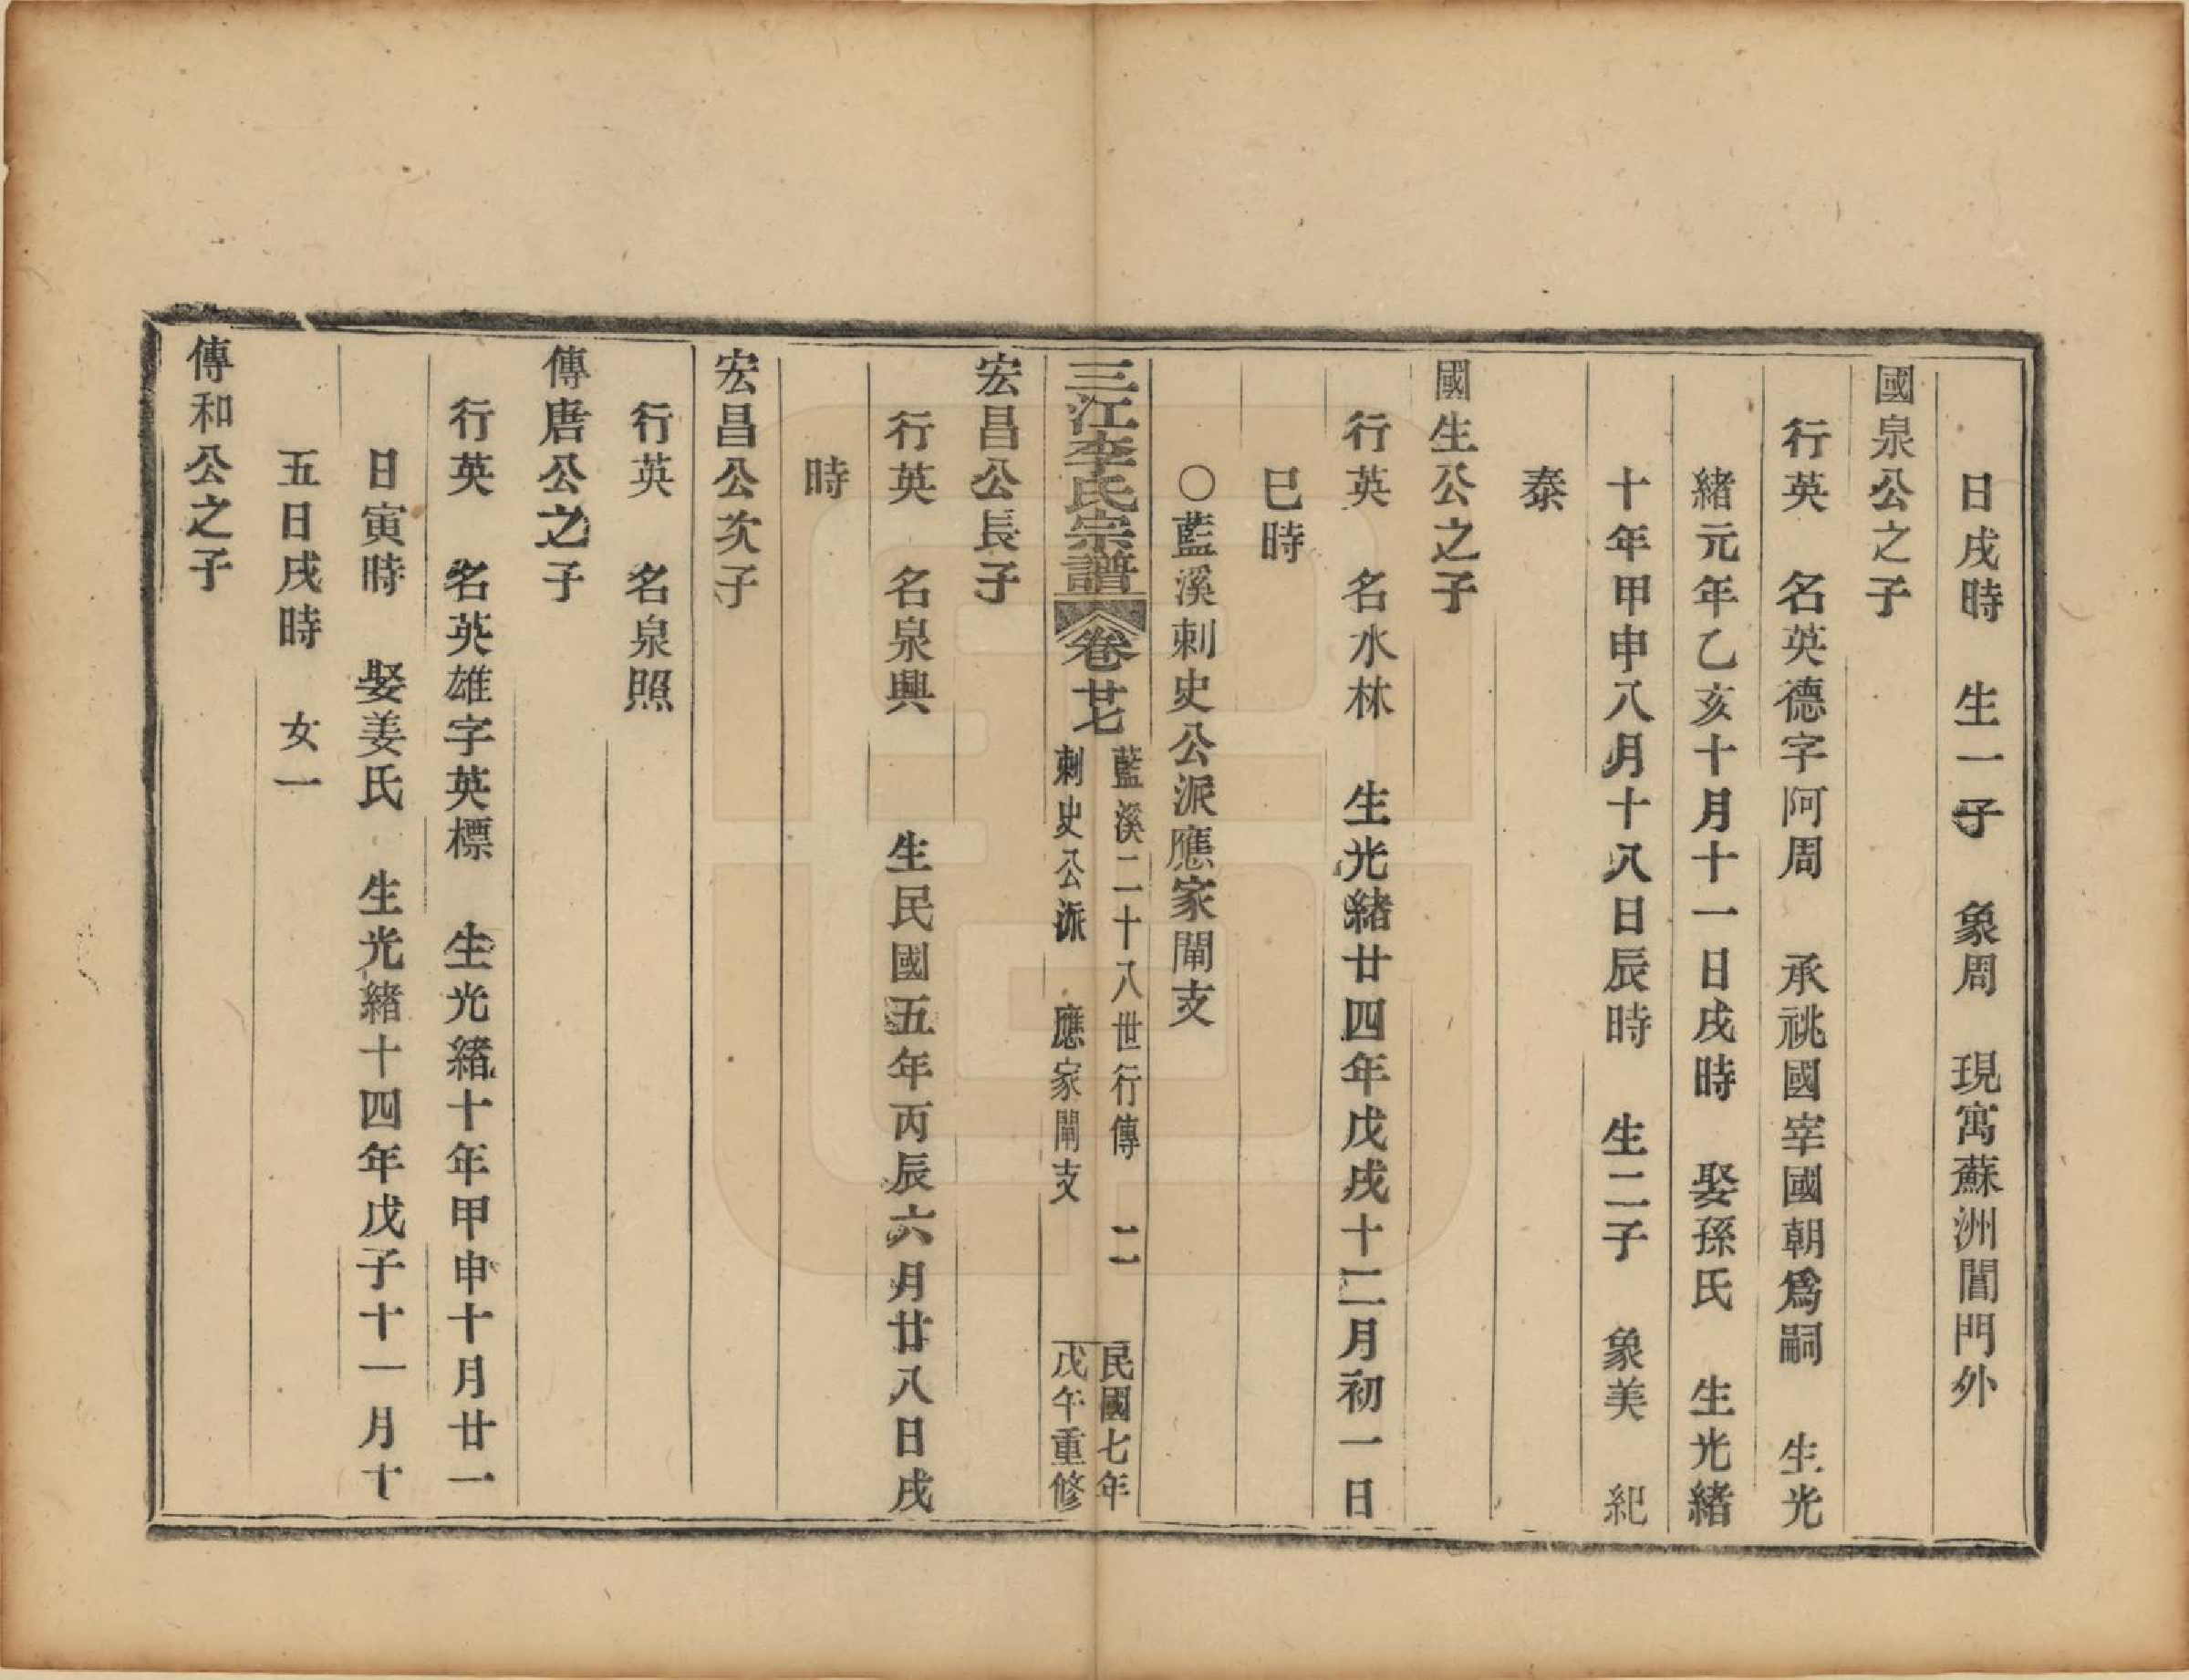 日戌時　生一子　象周　現寓蘇洲閶門外
國泉公之子
行英　名英德字阿周　承祧國宰國朝爲嗣　生光
緒元年乙亥十月十一日戌時　娶孫氏　生光緒
十年甲申八月十八日辰時　生二子　象美　紀
泰
國生公之子
行英　名水林　生光緒廿四年戊戌十二月初一日
巳時
〇藍溪刺史公派應家閘支
三江李氏宗譜　卷廿七
藍溪二十八世行傳　二
刺史公派　應家閘支
民國七年
戊午重修
宏昌公長子
行英　名泉興　生民國五年丙辰六月廿八日戌
時
宏昌公次子
行英　名泉照
傳唐公之子
行英　名英雄字英標　生光緒十年甲申十月廿一
日寅時　娶姜氏　生光緒十四年戊子十一月十
五日戌時　女一
傳和公之子